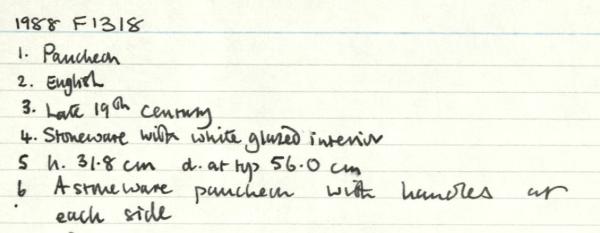 1988 F1318
1. Pancheon
2. English
3. Late 19th century
4. Stoneware with white glazed interior
5 h. 31.8 cm d. at top 56.0 cm
6 A stoneware pancheon with handles at
each side